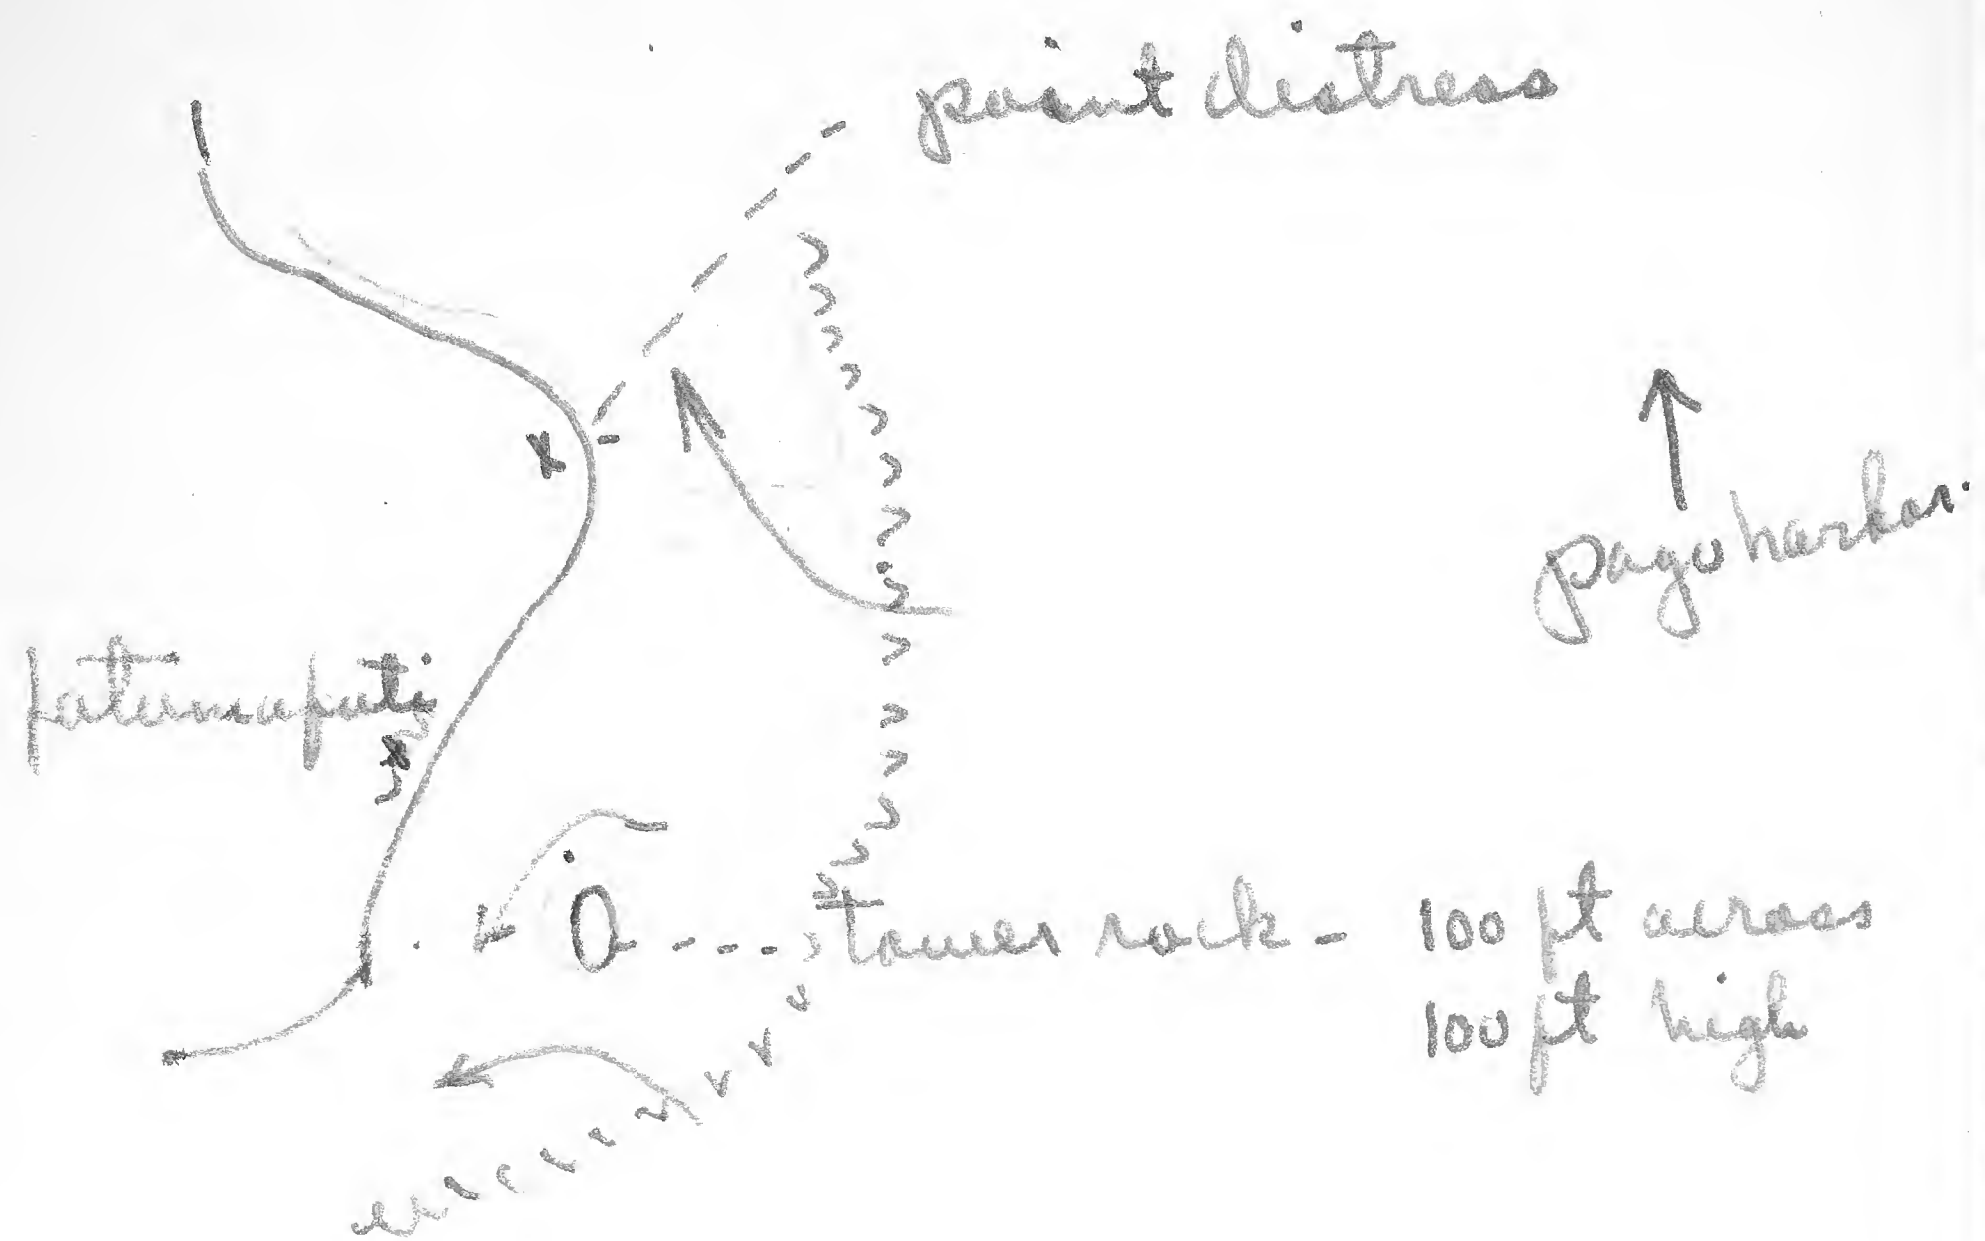 point distress
pago harbor.
fatumafuti
tower rock - 100 ft across
100 ft high